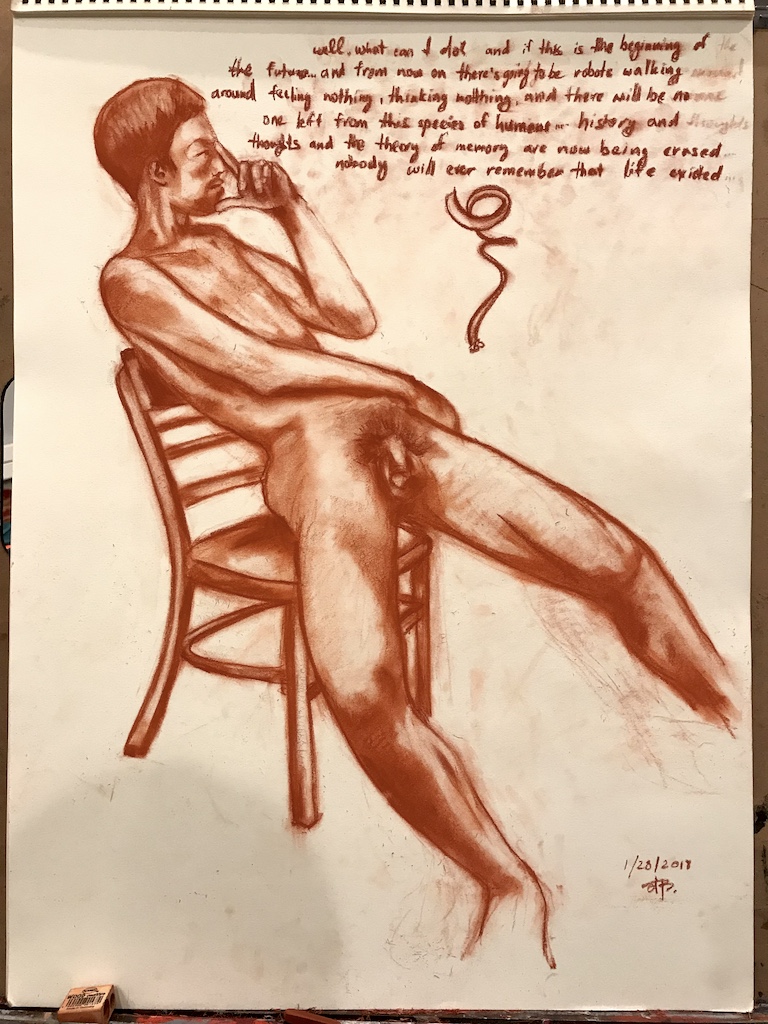 well, what can I do? and if this is the beginning of the
the future... and from now on there's going to be robots walking around
around feeling nothing, thinking nothing, and there will be no one
one left from this species of humans... history and thoughts
thoughts and the theory of memory are now being erased...
nobody will ever remember that life existed...
1/28/2018